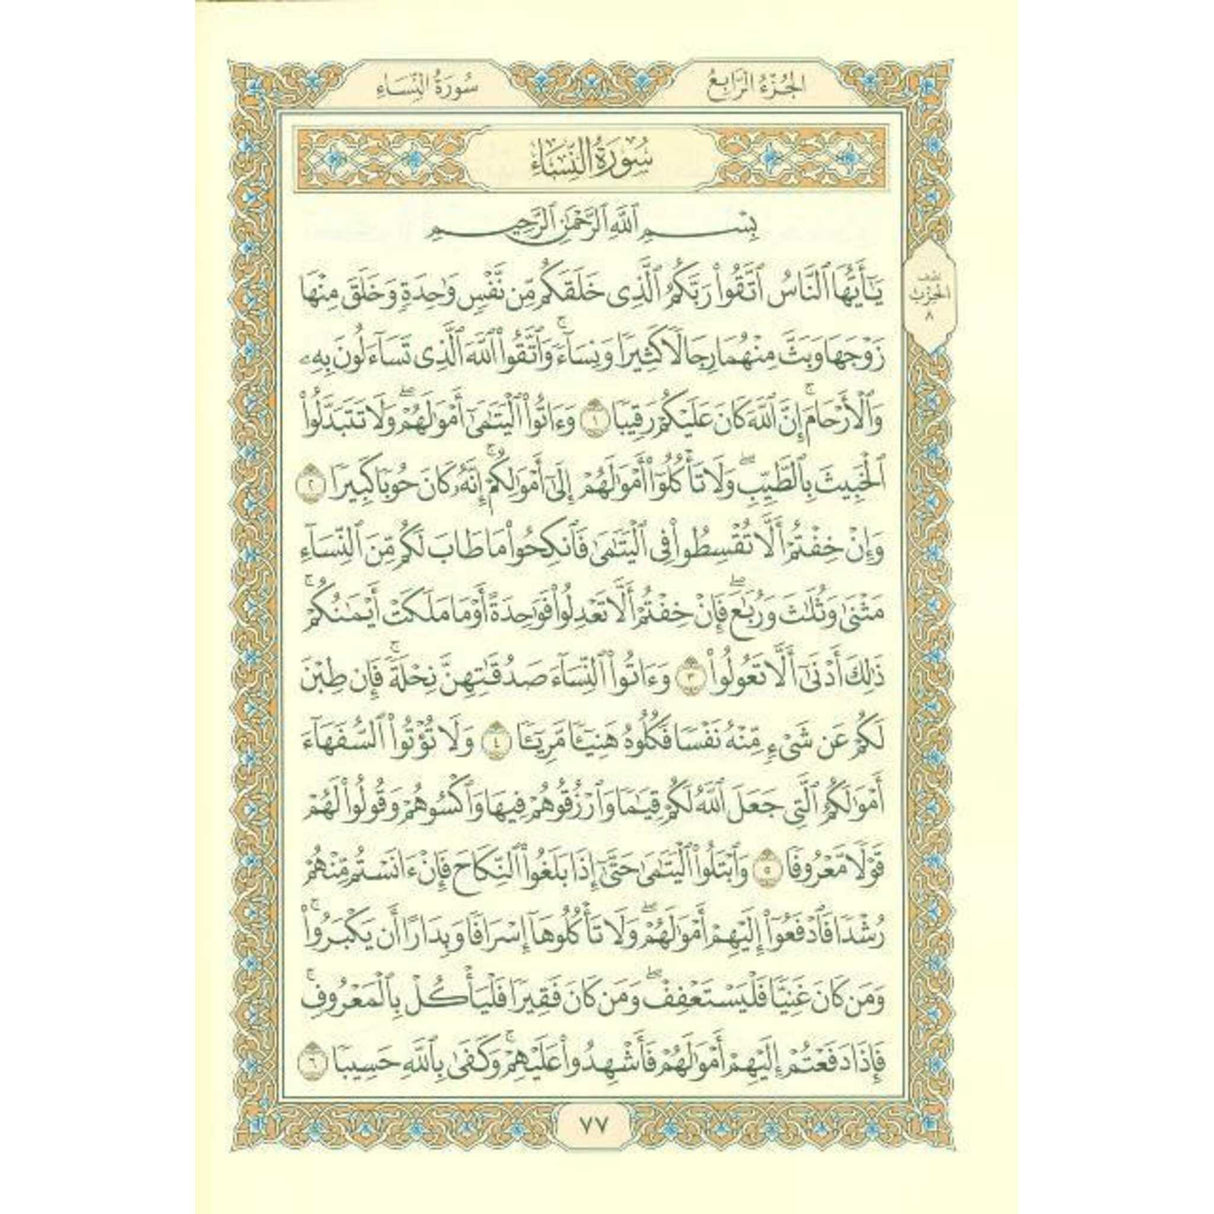 الجُزْءُ الرَّابِعُ
سُورَةُ النِّسَاءِ
سُورَةُ النِّسَاءِ
بِسْمِ ٱللَّهِ ٱلرَّحْمَٰنِ ٱلرَّحِيمِ
يَٰٓأَيُّهَا ٱلنَّاسُ ٱتَّقُوا۟ رَبَّكُمُ ٱلَّذِى خَلَقَكُم مِّن نَّفْسٍ وَٰحِدَةٍ وَخَلَقَ مِنْهَا
زَوْجَهَا وَبَثَّ مِنْهُمَا رِجَالًا كَثِيرًا وَنِسَآءً ۚ وَٱتَّقُوا۟ ٱللَّهَ ٱلَّذِى تَسَآءَلُونَ بِهِۦ
وَٱلْأَرْحَامَ ۚ إِنَّ ٱللَّهَ كَانَ عَلَيْكُمْ رَقِيبًا ١ وَءَاتُوا۟ ٱلْيَتَٰمَىٰٓ أَمْوَٰلَهُمْ ۖ وَلَا تَتَبَدَّلُوا۟
ٱلْخَبِيثَ بِٱلطَّيِّبِ ۖ وَلَا تَأْكُلُوٓا۟ أَمْوَٰلَهُمْ إِلَىٰٓ أَمْوَٰلِكُمْ ۚ إِنَّهُۥ كَانَ حُوبًا كَبِيرًا ٢
وَإِنْ خِفْتُمْ أَلَّا تُقْسِطُوا۟ فِى ٱلْيَتَٰمَىٰ فَٱنكِحُوا۟ مَا طَابَ لَكُم مِّنَ ٱلنِّسَآءِ
مَثْنَىٰ وَثُلَٰثَ وَرُبَٰعَ ۖ فَإِنْ خِفْتُمْ أَلَّا تَعْدِلُوا۟ فَوَٰحِدَةً أَوْ مَا مَلَكَتْ أَيْمَٰنُكُمْ ۚ
ذَٰلِكَ أَدْنَىٰٓ أَلَّا تَعُولُوا۟ ٣ وَءَاتُوا۟ ٱلنِّسَآءَ صَدُقَٰتِهِنَّ نِحْلَةً ۚ فَإِن طِبْنَ
لَكُمْ عَن شَىْءٍ مِّنْهُ نَفْسًا فَكُلُوهُ هَنِيٓـًٔا مَّرِيٓـًٔا ٤ وَلَا تُؤْتُوا۟ ٱلسُّفَهَآءَ
أَمْوَٰلَكُمُ ٱلَّتِى جَعَلَ ٱللَّهُ لَكُمْ قِيَٰمًا وَٱرْزُقُوهُمْ فِيهَا وَٱكْسُوهُمْ وَقُولُوا۟ لَهُمْ
قَوْلًا مَّعْرُوفًا ٥ وَٱبْتَلُوا۟ ٱلْيَتَٰمَىٰ حَتَّىٰٓ إِذَا بَلَغُوا۟ ٱلنِّكَاحَ فَإِنْ ءَانَسْتُم مِّنْهُمْ
رُشْدًا فَٱدْفَعُوٓا۟ إِلَيْهِمْ أَمْوَٰلَهُمْ ۖ وَلَا تَأْكُلُوهَآ إِسْرَافًا وَبِدَارًا أَن يَكْبَرُوا۟ ۚ
وَمَن كَانَ غَنِيًّا فَلْيَسْتَعْفِفْ ۖ وَمَن كَانَ فَقِيرًا فَلْيَأْكُلْ بِٱلْمَعْرُوفِ ۚ
فَإِذَا دَفَعْتُمْ إِلَيْهِمْ أَمْوَٰلَهُمْ فَأَشْهِدُوا۟ عَلَيْهِمْ ۚ وَكَفَىٰ بِٱللَّهِ حَسِيبًا ٦
نِصْف
الحِزْب
٨
٧٧